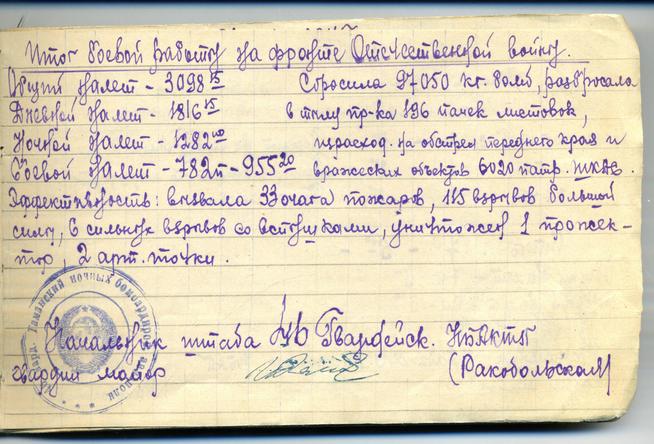 Итог боевой работы на фронте Отечественной войны.
Общий налет - 3098 15
Дневной налет - 1816 15
Ночной налет - 1282 00
Боевой налет - 782п - 955 20
Сбросила 97050 кг. бомб, разбросала
в тылу пр-ка 196 пачек листовок,
израсход. на обстрел переднего края и
вражеских объектов 6020 патр. ШКАС.
Эффективность: вызвала 33 очага пожаров, 115 взрывов большой
силы, 6 сильных взрывов со вспышками, уничтожен 1 прожек-
тор, 2 арт. точки.
Таманский ночных бомбардиро
Начальник штаба 46 Гвардейск. НБАКТП
гвардии майор
(Ракобольская)